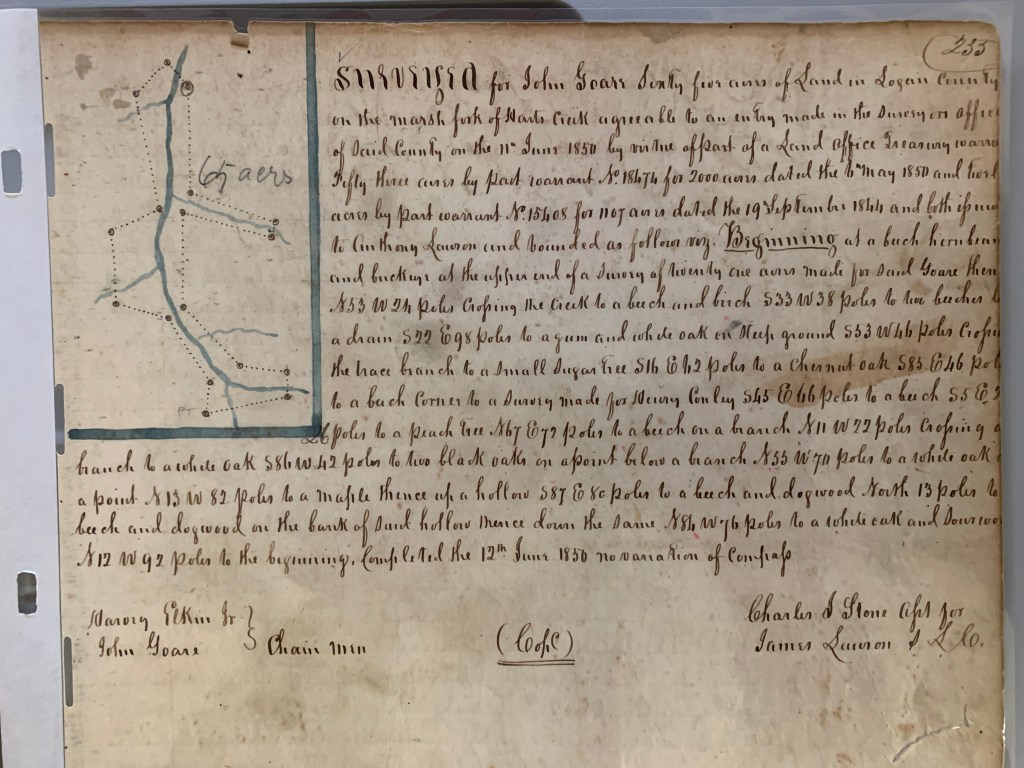 255
65 acrs
Surveyed for John Goare Sixty five acres of Land in Logan County
on the marsh fork of Harts Creek agreeable to an entry made in the Surveyors office
of Said County on the 11th June 1850 by virtue of part of a Land Office Treasury warra
Fifty three acres by part warrant No. 18474 for 2000 acres dated the 6th May 1850 and twel
acres by part warrant No. 15408 for 1107 acres dated the 19th September 1844 and both issued
to Anthony Lawson and bounded as follows viz. Beginning at a buch hornbeam
and buckeye at the upper end of a Survey of twenty one acres made for Said Goare then
N53 W 24 poles Crossing the Creek to a beech and birch S33 W 38 poles to two beeches
a drain S22 E 98 poles to a gum and white oak on Steep ground S53 W 46 poles Crossi
the trace branch to a Small Sugar tree S16 E 62 poles to a Chesnut oak S83 E 46 pol
to a buch Corner to a Survey made for Henry Conley S45 E 66 poles to a beech S5 E 2
26 poles to a peach tree N67 E 72 poles to a beech on a branch N11 W 22 poles Crossing a
branch to a white oak S86 W 42 poles to two black oaks on a point below a branch N55 W 70 poles to a white oak
a point N13 W 82 poles to a maple thence up a hollow S87 E 80 poles to a beech and dogwood North 13 poles to
beech and dogwood on the bank of Said hollow thence down the Same N86 W 76 poles to a white oak and Sourwoo
N12 W 92 poles to the beginning. Completed the 12th June 1850 no variation of Compass
Harvey Elkin Jr
John Goare } Chain men
(Copd)
Charles S Stone Asst for
James Lawson S L C.